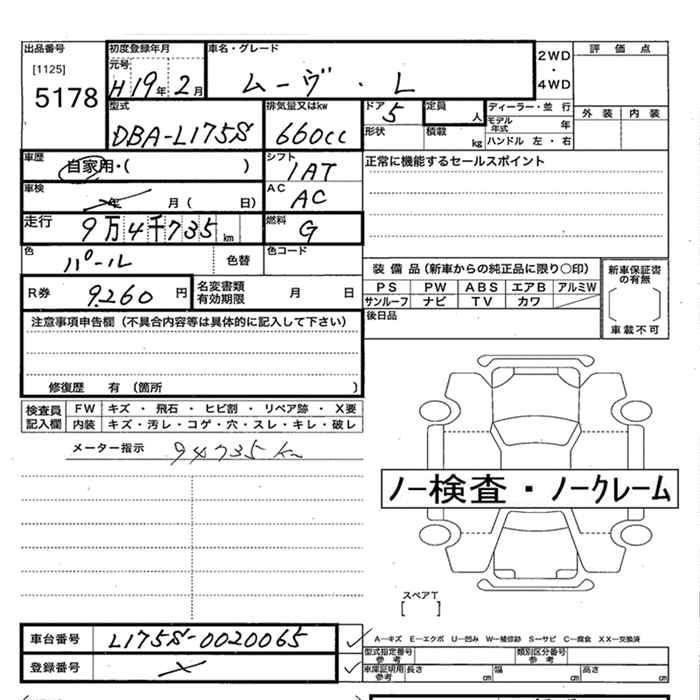 出品番号 初度登録年月 車名・グレード 評価点
[1125] 元号 2WD
5178 H19年2月 ムーヴ・L ・
4WD
型式 排気量又はkw ドア 定員 ディーラー・並行 外装 内装
DBA-L175S 660cc 5 人 モデル年式 年
形状 積載 kg ハンドル 左・右
車歴 自家用・( ) シフト 1AT 正常に機能するセールスポイント
車検 年 月 ( 日) AC AC
走行 9万4千735km 燃料 G
色 パール 色替 色コード
装備品(新車からの純正品に限り○印) 新車保証書の有無
R券 9.260円 名変書類有効期限 月 日 PS PW ABS エアB アルミW
サンルーフ ナビ TV カワ
注意事項申告欄(不具合内容等は具体的に記入して下さい) 後日品 車載不可
修復歴 有 (箇所 )
検査員 FW キズ・飛石・ヒビ割・リペア跡・X要
記入欄 内装 キズ・汚レ・コゲ・穴・スレ・キレ・破レ
メーター指示 94735km
ノー検査・ノークレーム
スペアT
[ ]
車台番号 L175S-0020065 A―キズ E―エクボ U―凹み W―補修跡 S―サビ C―腐食 XX―交換済
型式指定番号参考 類別区分番号参考
登録番号 車庫証明用参考 長さ cm 幅 cm 高さ cm